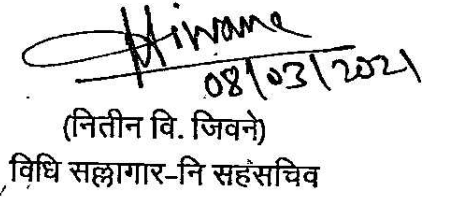 Hiwane
08/03/2021
(नितीन वि. जिवने)
विधि सल्लागार-नि सहसचिव